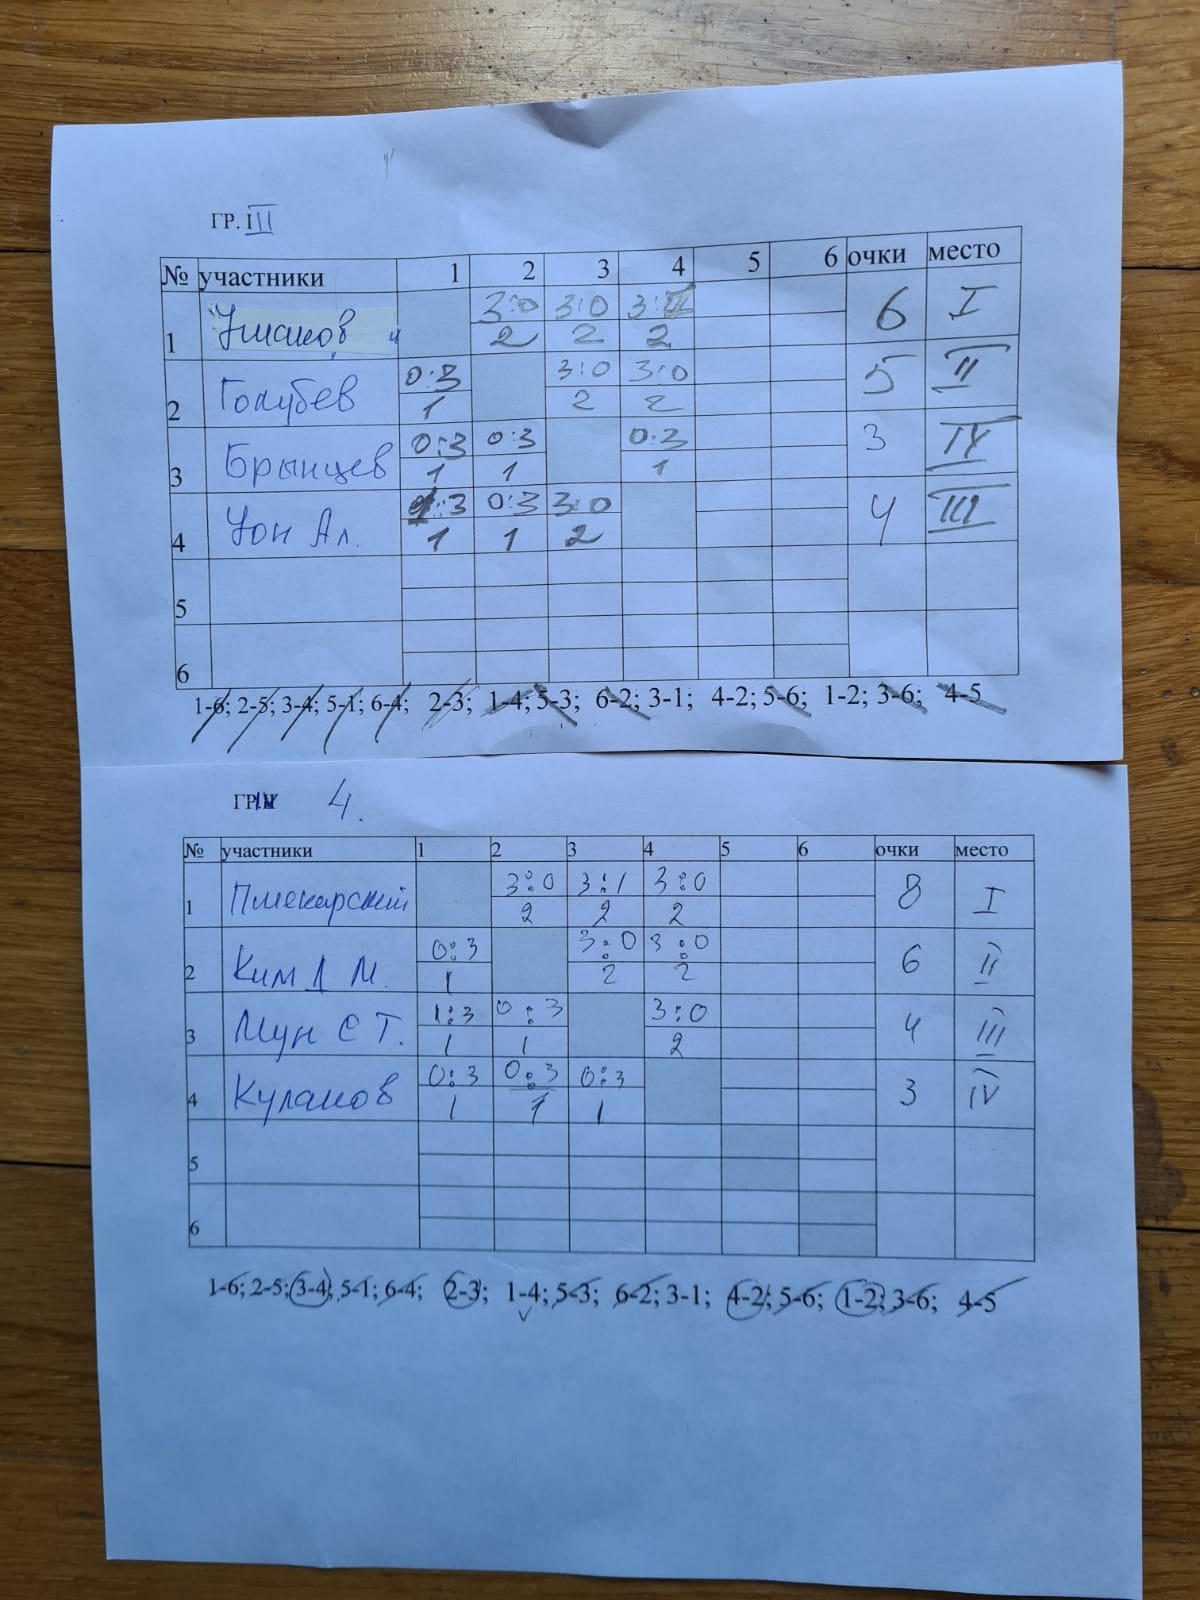 ГР. III
№ участники 1 2 3 4 5 6 очки место
3:0 3:0 3:
1 Умаков 2 2 2 6 I
0:3 3:0 3:0
2 Голубев 1 2 2 5 II
0:3 0:3 0:3
3 Брынцев 1 1 1 3 IV
:3 0:3 3:0
4 Ал. 1 1 2 4 III
5
6
1-6; 2-5; 3-4; 5-1; 6-4; 2-3; 1-4; 5-3; 6-2; 3-1; 4-2; 5-6; 1-2; 3-6; 4-5
ГР. IV 4.
№ участники 1 2 3 4 5 6 очки место
3:0 3:1 3:0
1 2 2 2 8 I
0:3 3:0 3:0
2 Ким Д М. 1 2 2 6 II
1:3 0:3 3:0
3 Мун С Т. 1 1 2 4 III
0:3 0:3 0:3
4 Кулаков 1 1 1 3 IV
5
6
1-6; 2-5; 3-4; 5-1; 6-4; 2-3; 1-4; 5-3; 6-2; 3-1; 4-2; 5-6; 1-2; 3-6; 4-5